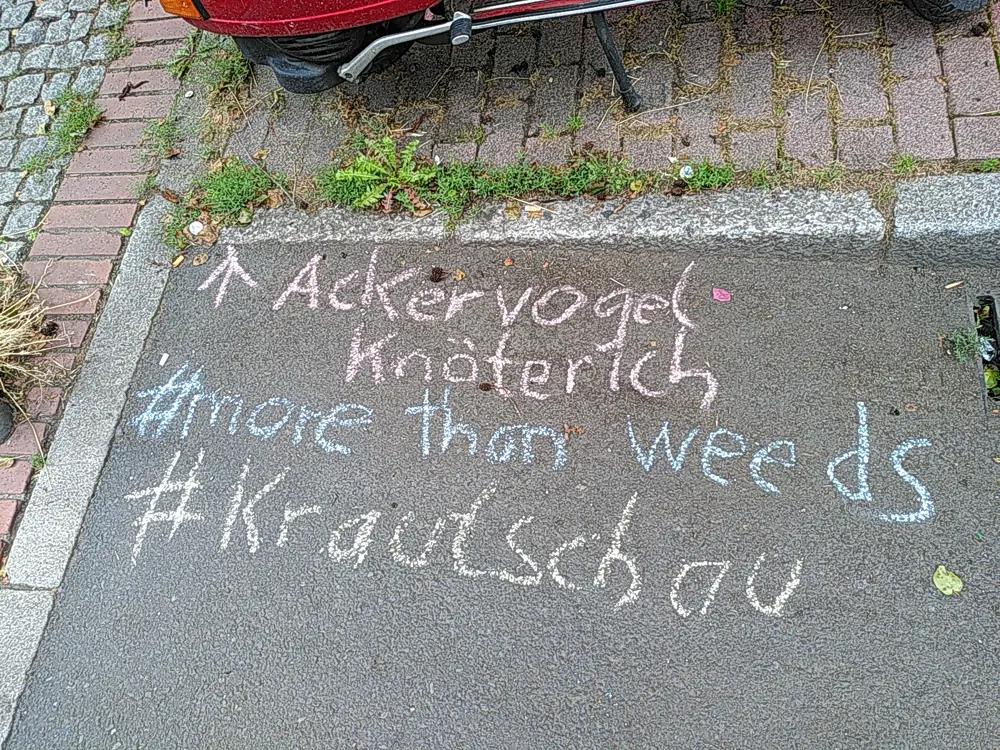 ↑ Ackervogel
Knöterich
#more than weeds
#Krautschau